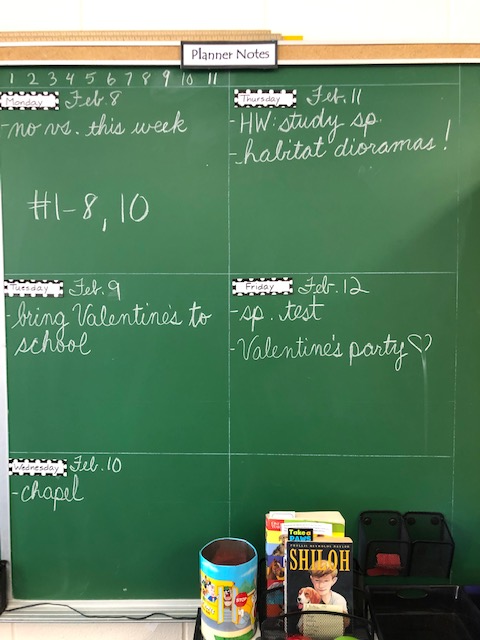 Planner Notes
1 2 3 4 5 6 7 8 9 10 11
Monday Feb. 8
-no vs. this week
#1-8, 10
Tuesday Feb. 9
-bring Valentine's to
school
Wednesday Feb. 10
-chapel
Thursday Feb. 11
-HW: study sp.
-habitat dioramas!
Friday Feb. 12
-sp. test
-Valentine's party♡
Take a
PAWS
PHYLLIS REYNOLDS NAYLOR
SHILOH
STOP